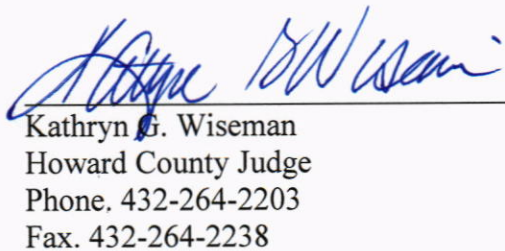 Kathryn G. Wiseman
Howard County Judge
Phone. 432-264-2203
Fax. 432-264-2238